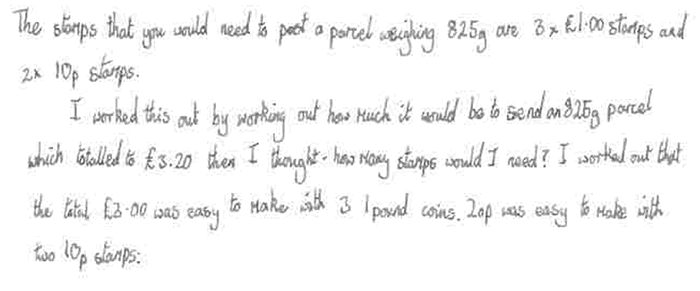 The stamps that you would need to post a parcel weighing 825g are 3 x £1.00 stamps and
2x 10p stamps.
I worked this out by working out how much it would be to send an 825g parcel
which totalled to £3.20 then I thought - how many stamps would I need? I worked out that
the total £3.00 was easy to make with 3 1 pound coins. 20p was easy to make with
two 10p stamps.